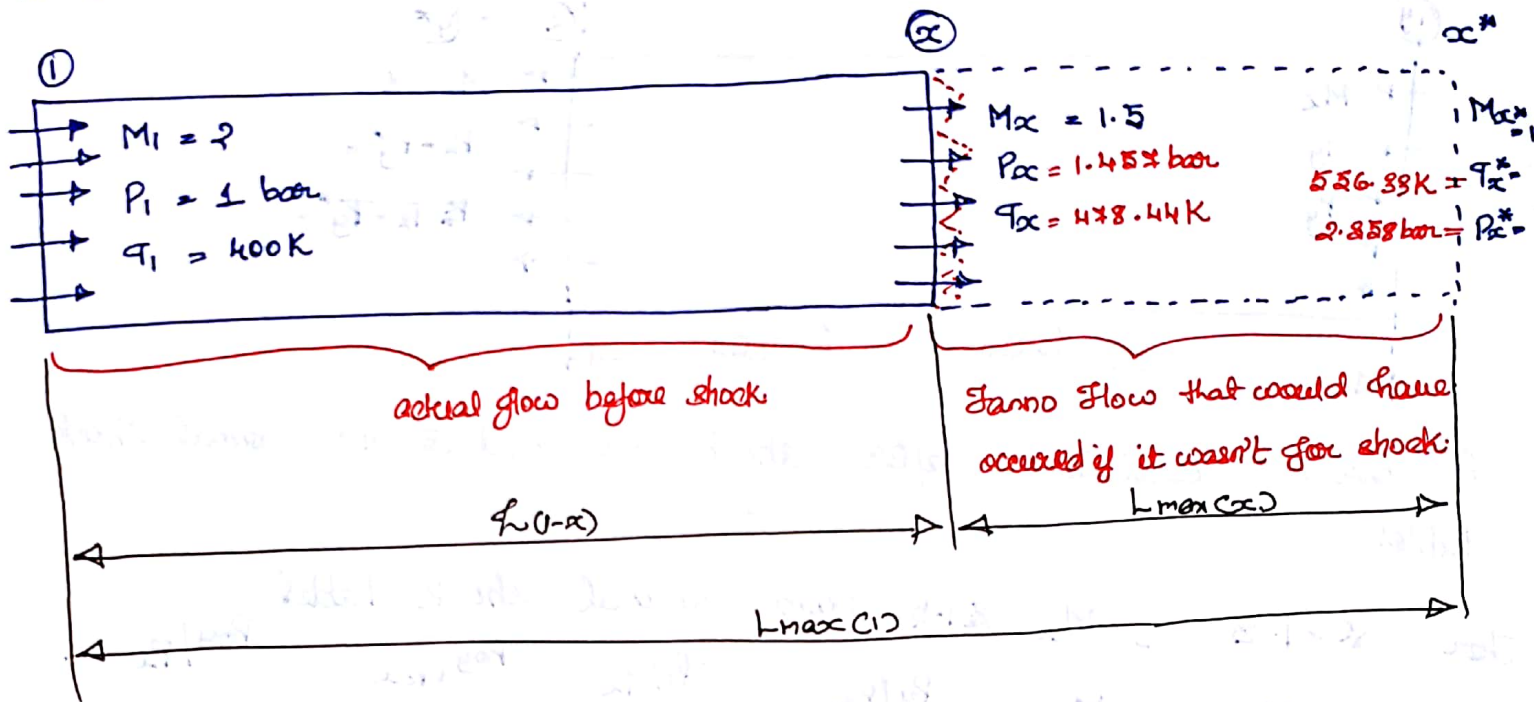 ①
ⓧ
x*
M1 = 2
P1 = 1 bar
T1 = 400K
Mx = 1.5
Px = 1.457 bar
Tx = 478.44K
Mx* = 1
556.33K = Tx* =
2.858 bar = Px* =
actual flow before shock.
Fanno Flow that would have
occured if it wasn't for shock.
L(1-x)
Lmax(x)
Lmax(1)